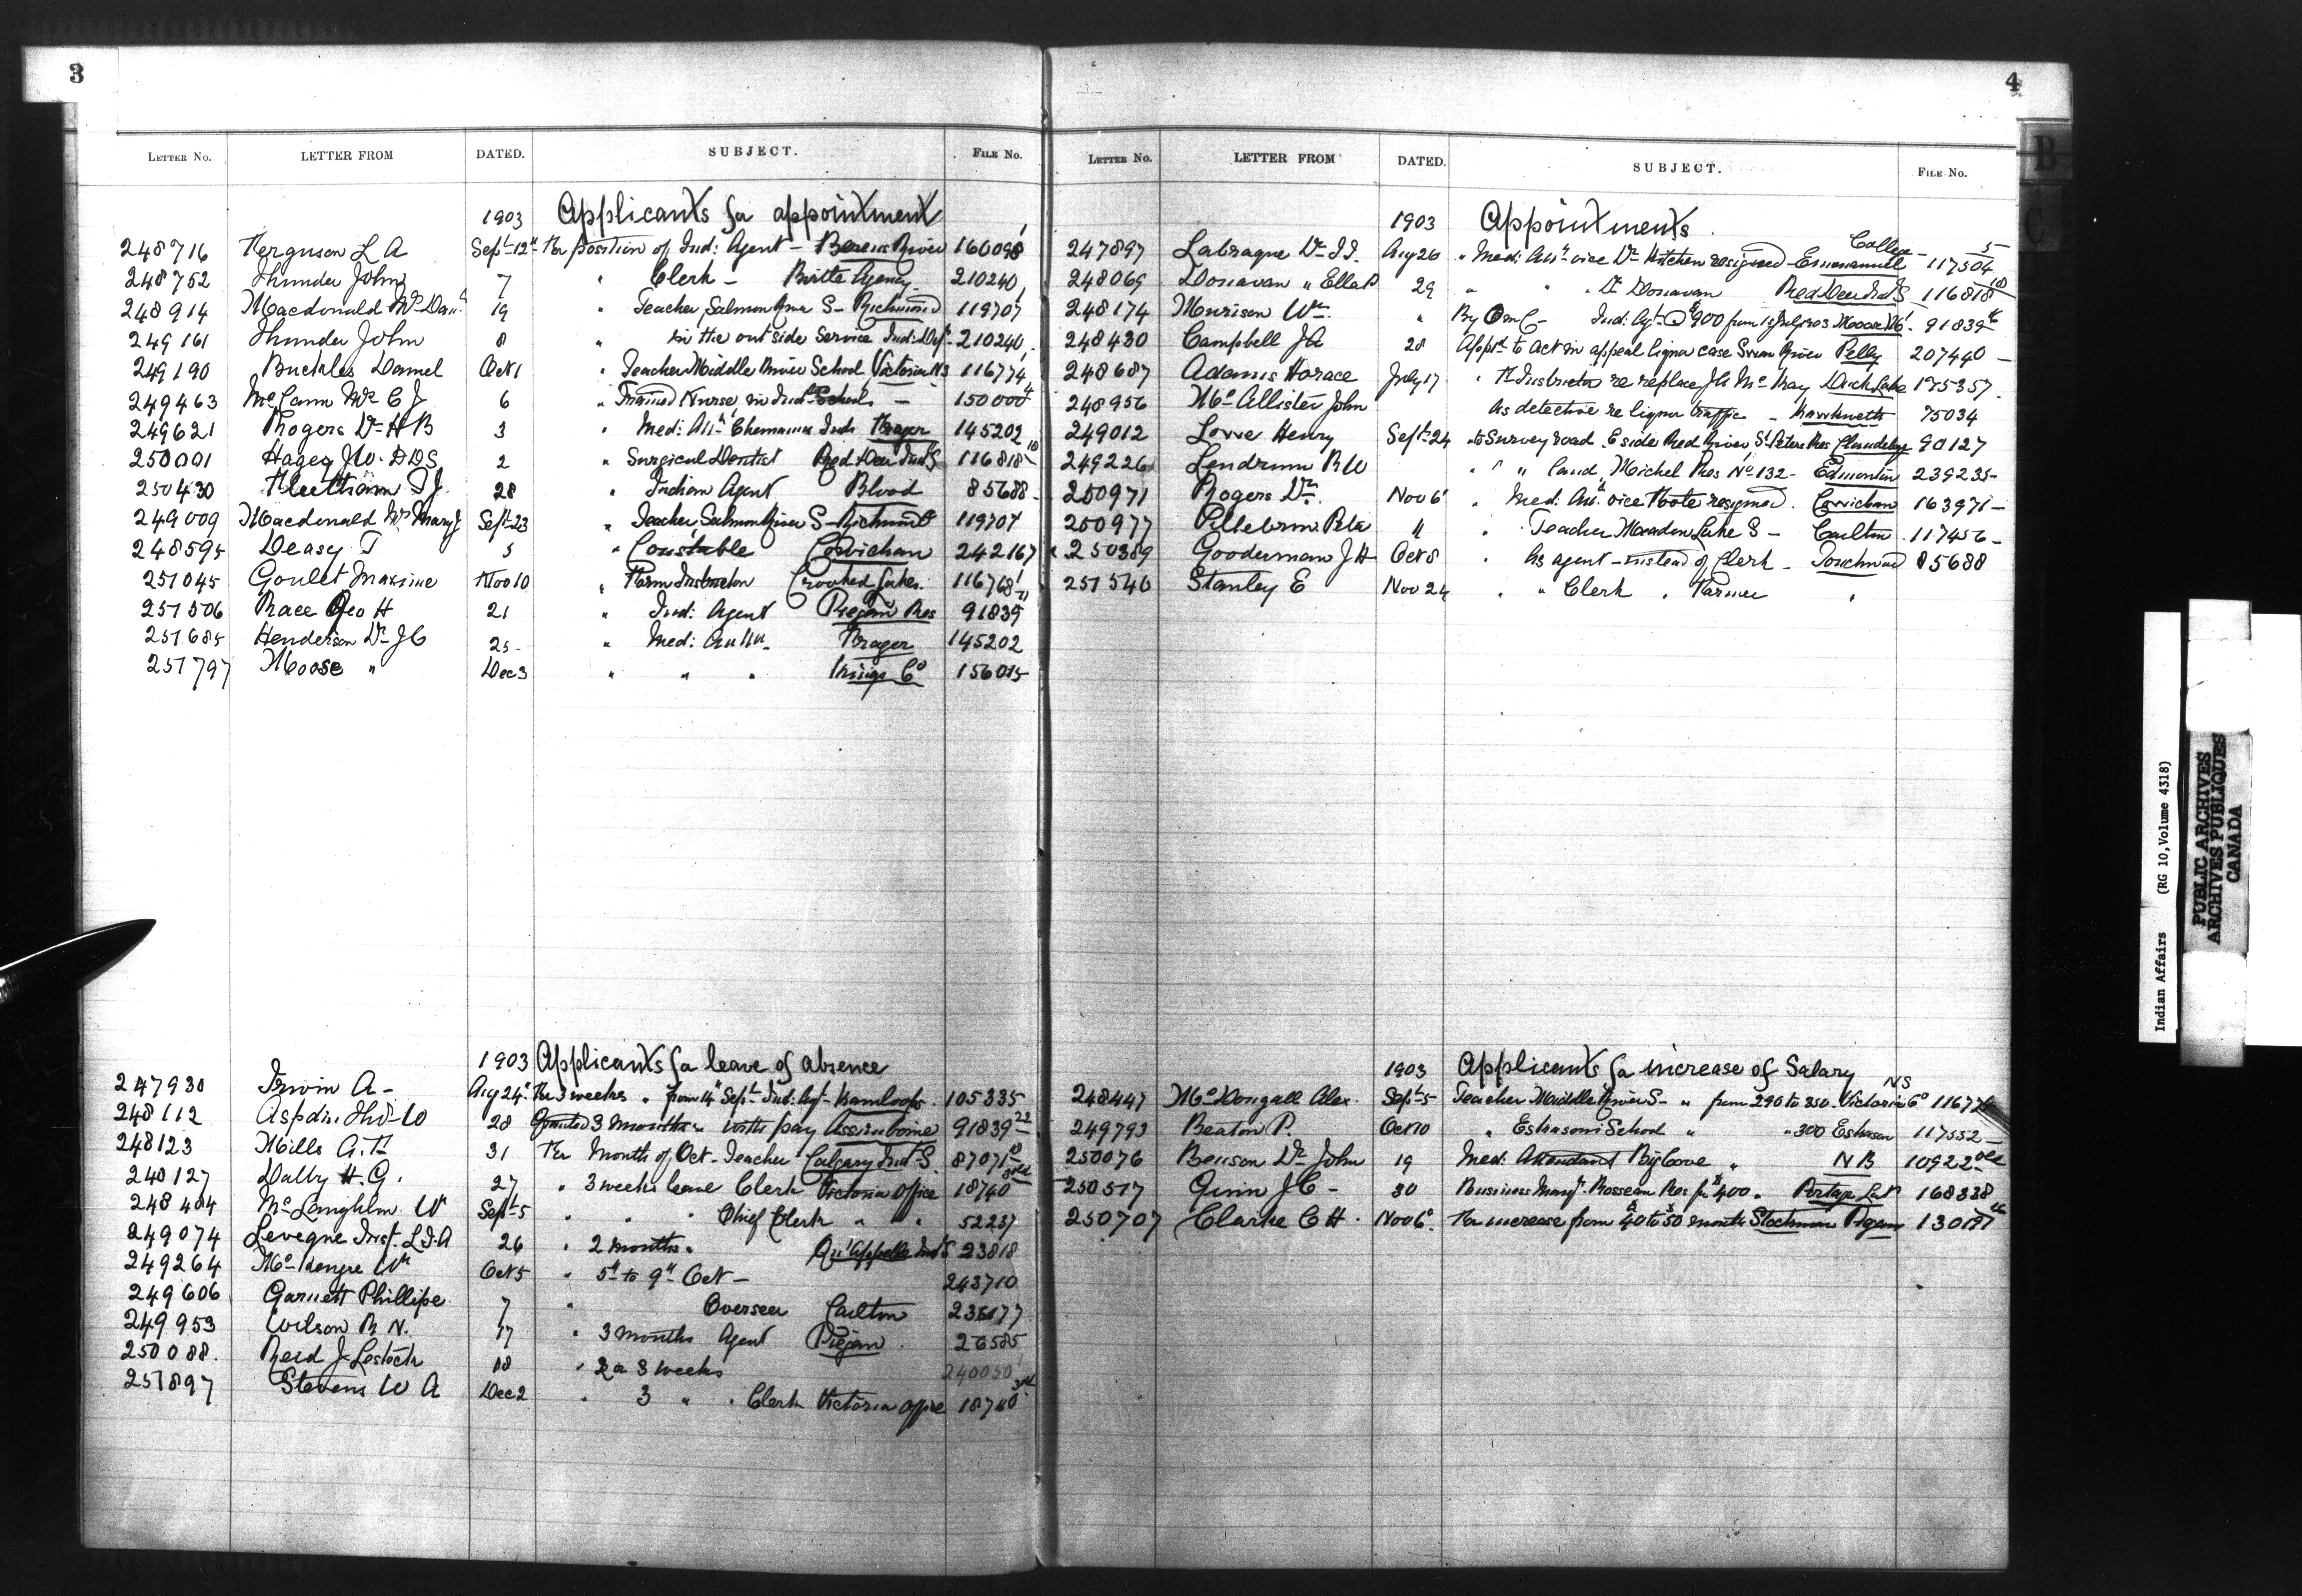 3
LETTER No. LETTER FROM DATED. SUBJECT. FILE No.
1903 Applicants for appointment
248716 Ferguson L A Sept 12th For position of Ind: Agent - Berens River 160098
248752 Thunder John 7 " Clerk - Birtle Agency 210240
248914 Macdonald 19 " Teacher Salmon River S - Richmond 119707
249161 Thunder John 8 " in the outside service Ind: Dept 210240
249190 Buckles Daniel Oct 1 " Teacher Middle River School Victoria NS 116774
249463 McCann C J 6 " Trained Nurse in Ind: Schools - 150000
249621 Rogers Dr H B 3 " Med: Att: Chemainus Inds Fraser 145202
250001 Hagey J W. DDS 2 " Surgical Dentist Red Deer Ind S 116818 10
250430 Fleetham T J 28 " Indian Agent Blood 85688 -
249009 Macdonald Mary J Sept 23 " Teacher Salmon River S - Richmond 119707
248595 Deasy T 5 " Constable Cowichan 242167
251045 Goulet Maxime Nov 10 " Farm Instructor Crooked Lakes 116768
251506 Race Geo H 21 " Ind: Agent Piegan Res 91839
251685 Henderson Dr J C 25 - " Med: Fraser 145202
251797 Moose " Dec 3 " " " Kings Co 156015
1903 Applicants for leave of absence
247930 Irwin A - Aug 24 For 3 weeks " from 14 Sept Ind: Agt - Kamloops 105335
248112 Aspdin W 28 Granted 3 months with pay Assiniboine 91839 22
248123 Mills A. F. 31 For Month of Oct - Teacher Calgary Ind S. 87071 10
248127 Dalby H. G. 27 " 3 weeks leave Clerk Victoria Office 18740 3rd
248404 McLaughlin W Sept 5 " " " Chief Clerk " " 52237
249074 Leveque Inst. L. J. A 26 " 2 months " Qu'Appelle Ind S 23818
249264 Wm Oct 5 " 5th to 9th Oct - 243710
249606 Garnett Phillipe 7 " Overseer Carlton 236177
249953 Wilson R N. 17 " 3 months Agent Piegan 26585
250088. Reid J Lestock 18 " 2 or 3 weeks 240050
251897 Stevens W A Dec 2 " 3 " " Clerk Victoria Office 18740 3rd
4
LETTER No. LETTER FROM DATED. SUBJECT. FILE No.
1903 Appointments
College
247897 Labraque Dr Aug 26 " Med: Att: vice Dr resigned - Emmanuel 117504 5
248069 Donavan " Ella P 29 " " " Dr Donavan Red Deer Ind S 116818 10
248174 Morison Wm. " By O in C - Ind: Agt @ $900 from 1st July 1903 Moose Mt. 91839
248430 Campbell J A 28 Appt to act in appeal liquor case Swan River Pelly 207440 -
248687 Adams Horace July 17 " F Instructor re replace McKay Duck Lake 195357.
248956 McAllister John As detective re liquor traffic - 75034
249012 Lowe Henry Sept 24 to survey road E side Red River, St Peters Res Clandeboye 90127
249226 Lendrum R W " " " land, Michel Res No 132 - Edmonton 239235 -
250971 Rogers Dr. Nov 6 " Med: Att. vice Foote resigned. Cowichan 163971 -
250977 11 " Teacher Meadow Lake S - Carlton 117456 -
250389 Gooderman J H Oct 8 " As agent - instead of Clerk - Touchwood 85688
251540 Stanley E Nov 24 " " Clerk " Farmer "
1903 Applicants for increase of Salary
248447 McDougall Alex. Sept 5 Teacher Middle River S - " from 290 to 350. Victoria Co NS 11677
249793 Beaton P. Oct 10 " Eskasoni School " " 300 Eskason 117552 -
250076 Benson Dr John 19 Med: Attendant Big Cove " NB 10922 old
250517 Ginn J C - 30 Business Mangr. Rosseau Res for $400. Portage La P 168338
250707 Clarke C H. Nov 6. For increase from $40 to $50 month Stockman Piegan
Indian Affairs (RG 10, Volume 4318)
PUBLIC ARCHIVES
ARCHIVES PUBLIQUES
CANADA
B
C